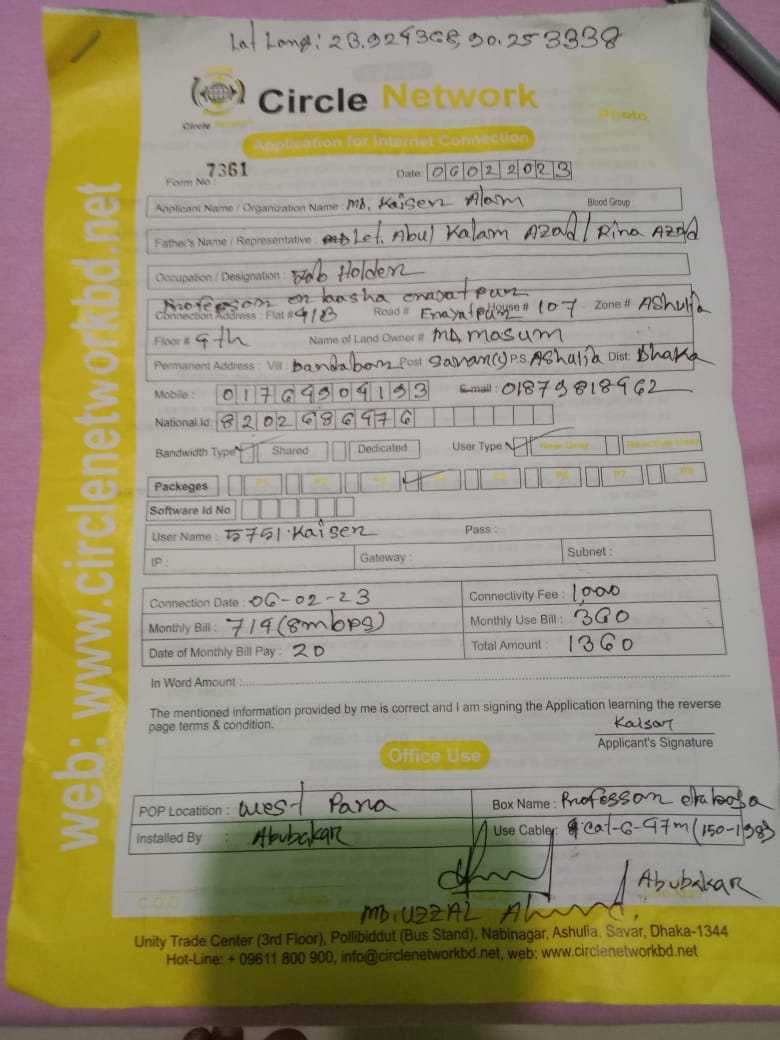 Lat Long: 23.924368, 90.253338
Circle Network
Circle Network
Photo
Application for Internet Connection
Form No : 7361
Date: 06022023
Applicant Name / Organization Name : MD, Kaiser Alam Blood Group
Father's Name / Representative : Let. Abul Kalam Azad / Rina Azad
Occupation / Designation : Job Holder
Professor er baasha enayetpur
Connection Address : Flat # 4/B Road # Enayatpur House # 107 Zone # Ashulia
Floor # 4th Name of Land Owner # MD, masum
Permanent Address : Vill : Dandabor Post Savar(s) P.S. Ashulia Dist: Dhaka
Mobile : 01764904193 Email : 01879818462
National Id: 8202686976
Bandwidth Type Shared Dedicated User Type New User Reactive User
Packeges P1 P2 P3 P4 P5 P6 P7 P8
Software Id No
User Name : চ751.Kaiser Pass :
IP : Gateway : Subnet :
Connection Date : 06-02-23 Connectivity Fee : 1,000
Monthly Bill : 714 (8mbps) Monthly Use Bill : 360
Date of Monthly Bill Pay : 20 Total Amount : 1360
In Word Amount :
The mentioned information provided by me is correct and I am signing the Application learning the reverse
page terms & condition.
Kaisar
Applicant's Signature
Office Use
POP Locatition : West Para Box Name : Professor er basa
Installed By : Abubakar Use Cable : cat-6-47m (150-198)
Abubakar
C.O.O Admin
MD. UZZAL Ahmed.
Unity Trade Center (3rd Floor), Pollibiddut (Bus Stand), Nabinagar, Ashulia, Savar, Dhaka-1344
Hot-Line: + 09611 800 900, info@circlenetworkbd.net, web: www.circlenetworkbd.net
web: www.circlenetworkbd.net